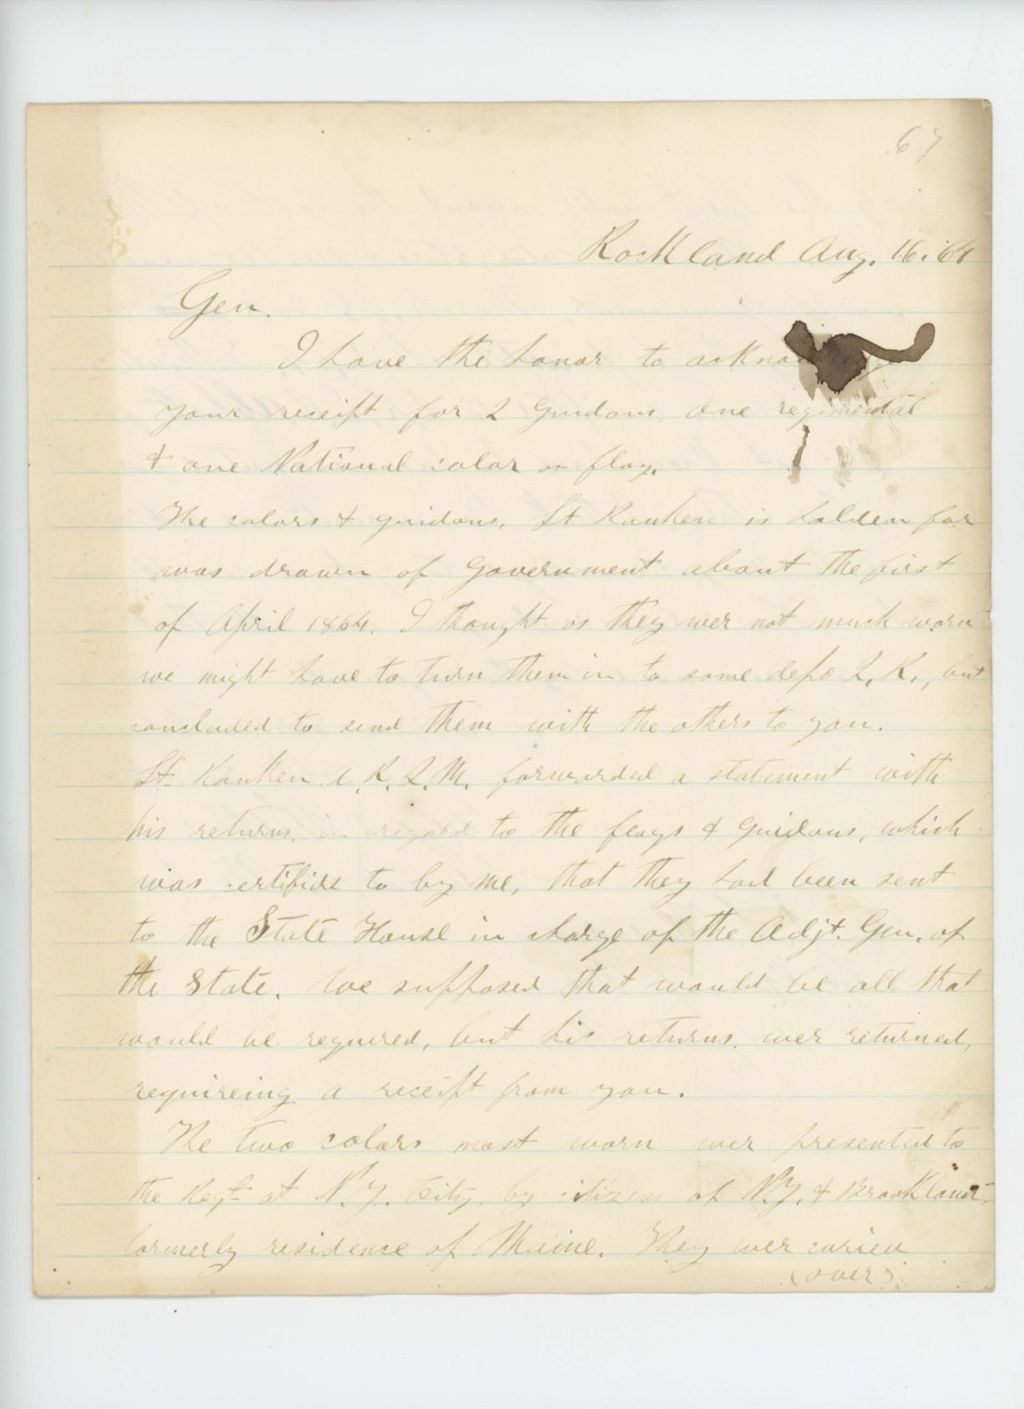 67
Rockland Aug. 16. 64
Gen.
I have the honor to
your receipt for 2 Guidons, one regimental
& one National color or flag.
The colors & guidons, Lt Kanken is holden for
was drawn of Government about the first
of April 1864. I thought as they wer not much worn
we might have to turn them in to some depo Q. K., but
concluded to send them with the others to you.
Lt Kanken A. K. Q. M. forwarded a statement with
his returns, in regard to the flags & Guidons, which
was certifide to by me, that they had been sent
to the State House in charge of the Adjt. Gen. of
the State. We supposed that would be all that
would be requred, but his returns. wer returned,
requireing a receipt from you.
The two colors most worn wer presented to
the Regt at N.Y. City, by citizens of N.Y. & Brookland
formerly residence of Maine. They wer
(over)